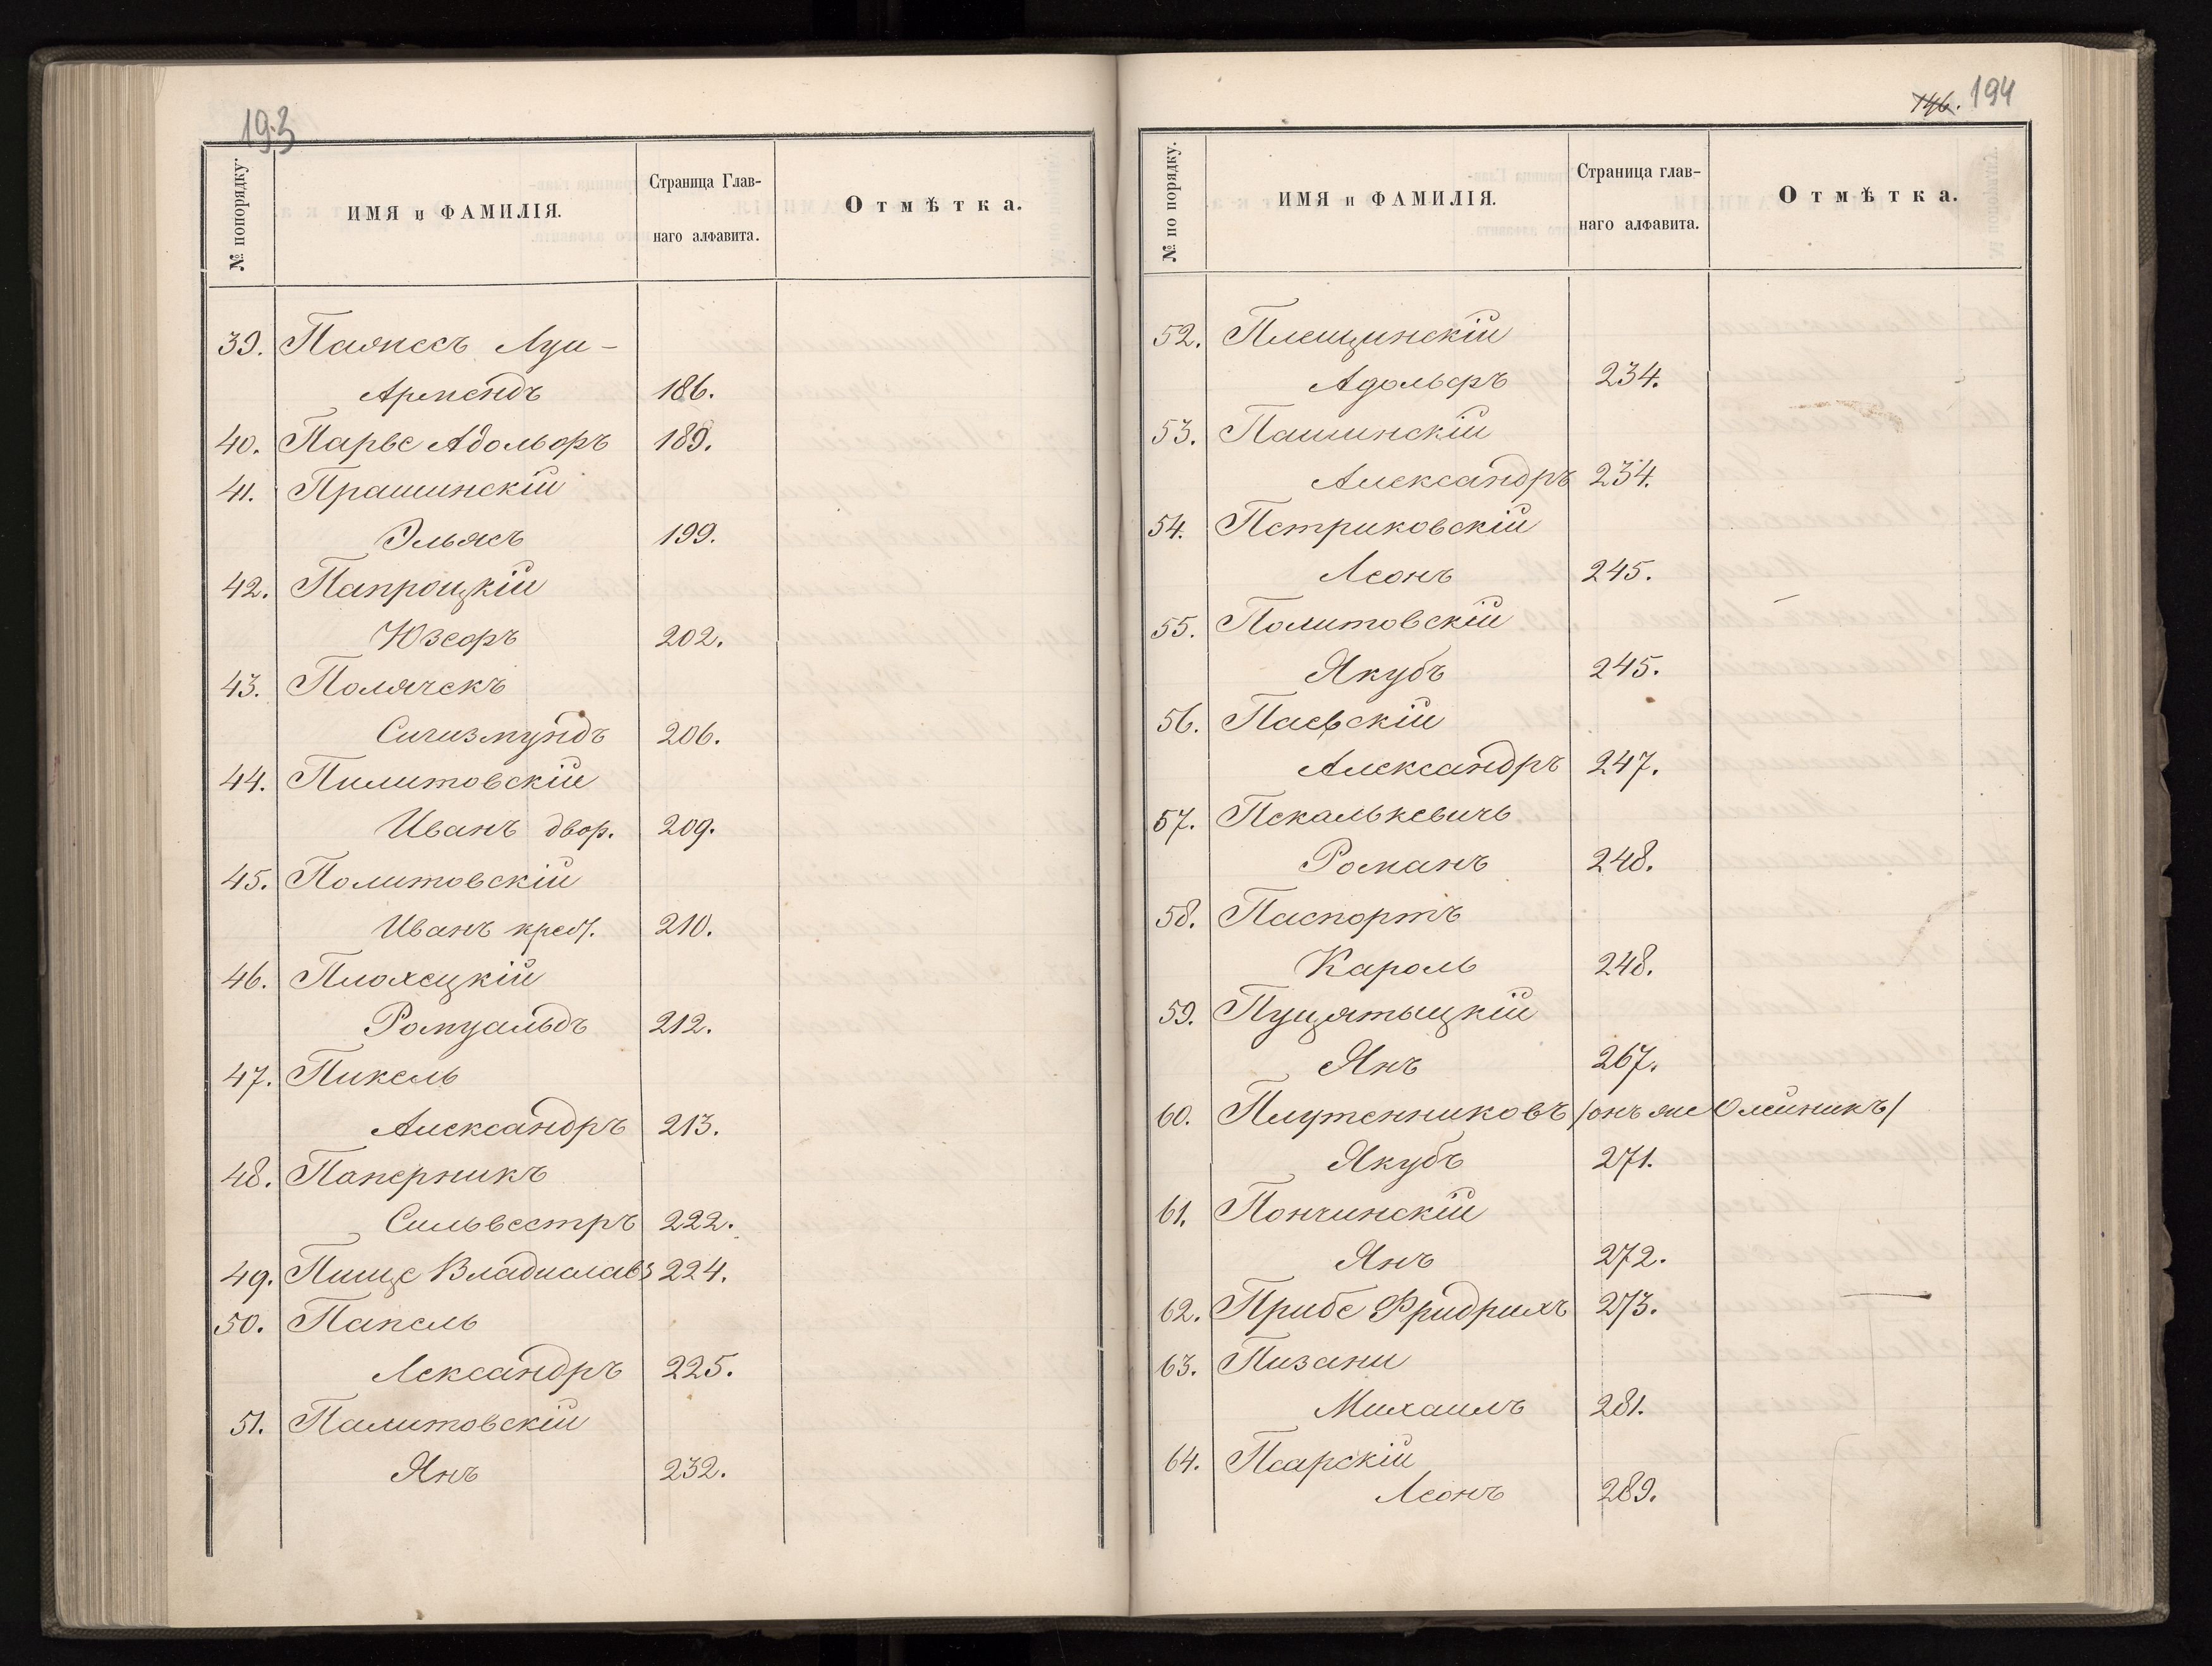 193
№ попорядку.
ИМЯ и ФАМИЛІЯ.
Страница Глав-
наго алфавита.
Отмѣтка.
39. Паянесъ Луи-
Армендъ 186.
40. Парье Адольфъ 189.
41. Прашинскій
Эльясъ 199.
42. Папроцкій
Юзефъ 202.
43. Полячекъ
Сигизмундъ 206.
44. Пилитовскій
Иванъ двор. 209.
45. Политовскій
Иванъ крест. 210.
46. Плохецкій
Ромуальдъ 212.
47. Пикель
Александръ 213.
48. Паперникъ
Сильвестръ 222.
49. Пище Владиславъ 224.
50. Папель
Александръ 225.
51. Палитовскій
Янъ 232.
146. 194
№ по порядку.
ИМЯ и ФАМИЛІЯ.
Страница глав-
наго алфавита.
Отмѣтка.
52. Плещинскій
Адольфъ 234.
53. Пашинскій
Александръ 234.
54. Петриковскій
Леонъ 245.
55. Политовскій
Якубъ 245.
56. Паевскій
Александръ 247.
57. Пекалькевичъ
Романъ 248.
58. Паспортъ
Кароль 248.
59. Пуцятыцкій
Янъ 267.
60. Плутенниковъ /онъ же Олейникъ/
Якубъ 271.
61. Пончинскій
Янъ 272.
62. Прибе Фридрихъ 273.
63. Пизани
Михаилъ 281.
64. Псарскій
Леонъ 289.